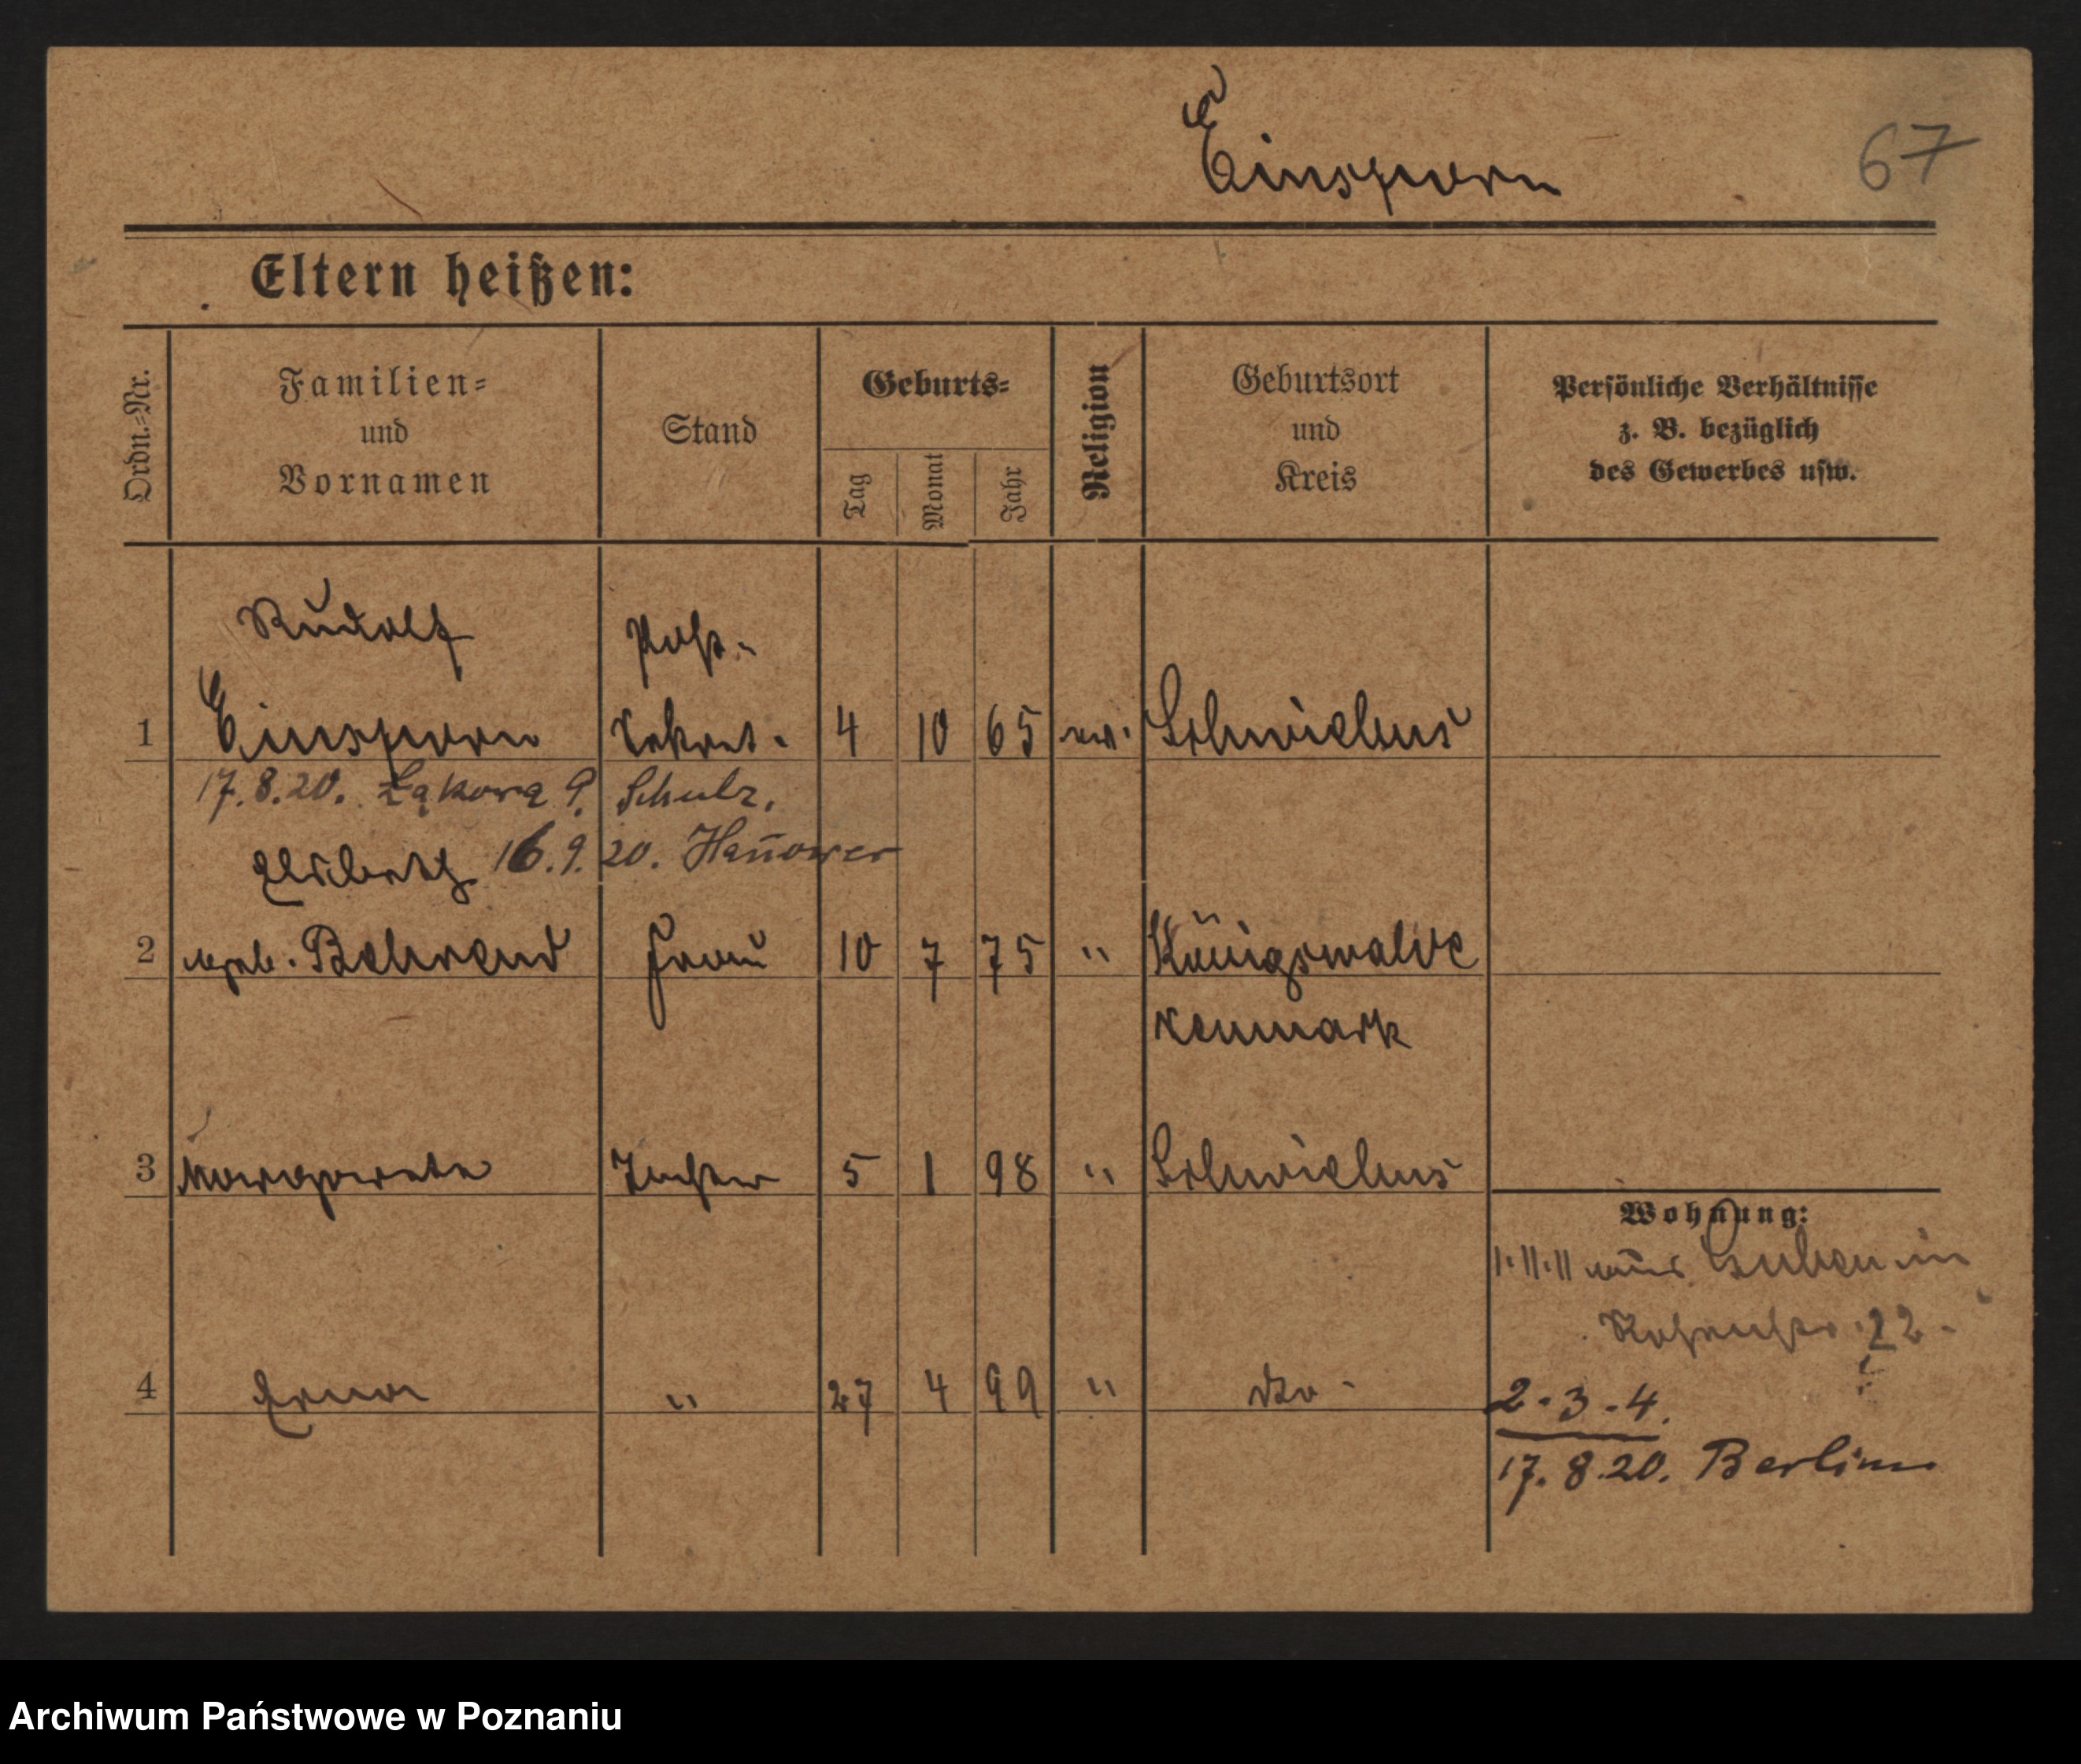 Einsporn
67
Eltern heißen:
Ordn.-Nr.
Familien-
und
Vornamen
Stand
Geburts-
Tag
Monat
Jahr
Religion
Geburtsort
und
Kreis
Persönliche Verhältnisse
z. B. bezüglich
des Gewerbes usw.
Rudolf Post-
1 Einsporn Sekret. 4 10 65 ev. Schwiebus
17.8.20. Łąkowa 9. Schulz.
16.9.20. Hañower
Elsbeth
2 geb. Behrend Frau 10 7 75 " Königswalde
Neumark
3 Margarete Tochter 5 1 98 " Schwiebus
Wohnung:
1.11.11 aus Guben in
22.
4 Erna " 27 4 99 " do -
2.3.4.
17.8.20. Berlin
Archiwum Państwowe w Poznaniu